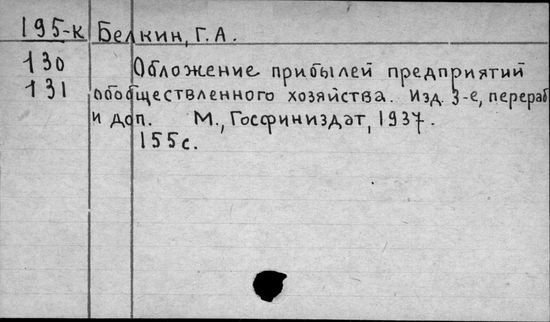 195-к Белкин, Г. А.
130 Обложение прибылей предприятий
131 обобществленного хозяйства. Изд. 3-е, перераб
и доп. М., Госфиниздат, 1937.
155с.